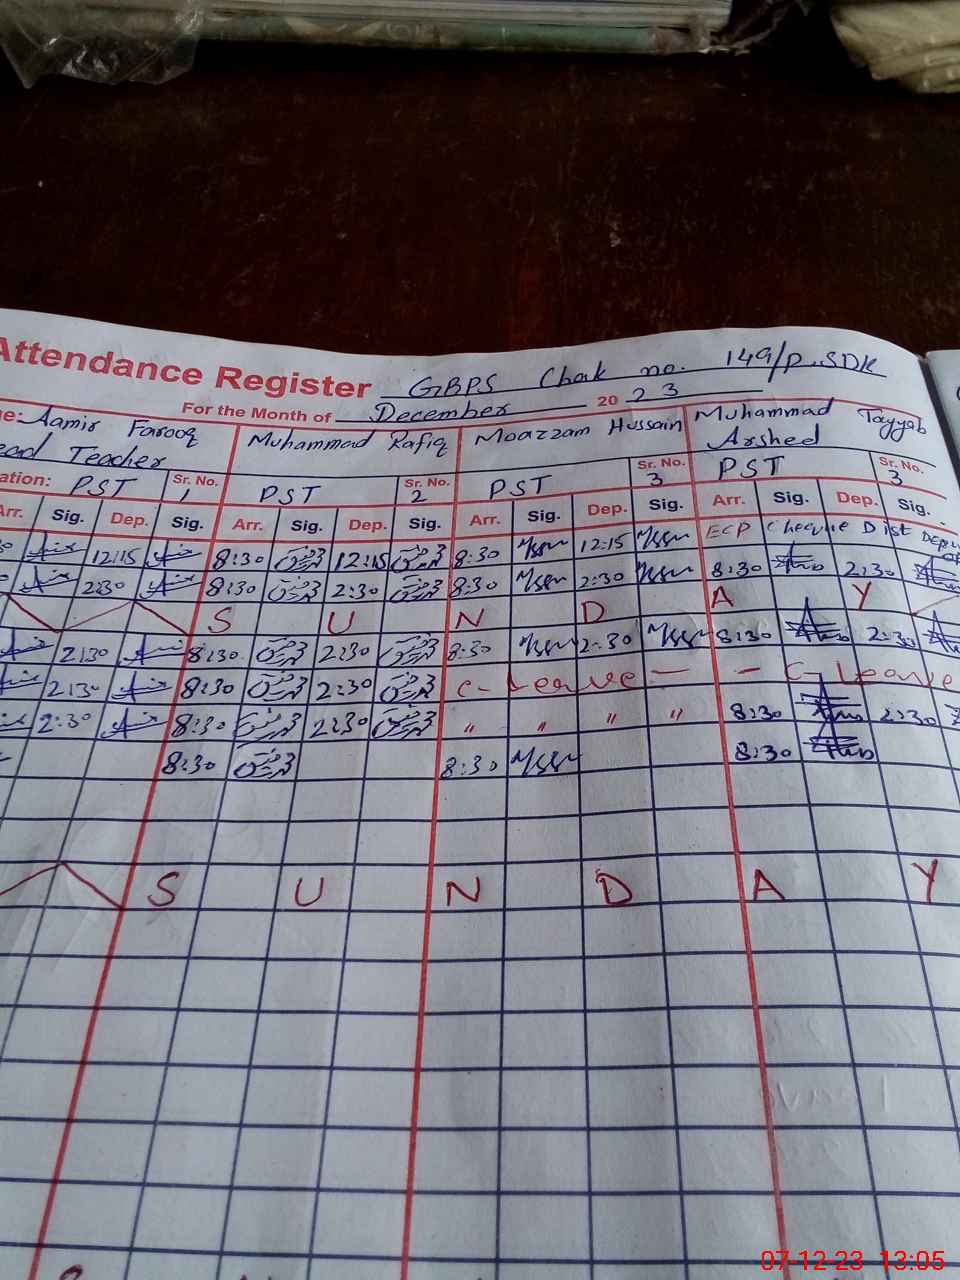 Attendance Register GBPS Chak no. 149/P SDK
For the Month of December 20 23
Aamir Farooq Muhammad Rafiq Moazzam Hussain Muhammad Tayyab
Head Teacher Arshed
PST Sr. No. 1 PST Sr. No. 2 PST Sr. No. 3 PST Sr. No. 3
Arr. Sig. Dep. Sig. Arr. Sig. Dep. Sig. Arr. Sig. Dep. Sig. Arr. Sig. Dep. Sig.
12:15 8:30 12:15 8:30 12:15 ECP Cheque Dist
2:30 8:30 2:30 8:30 2:30 8:30 2:30
S U N D A Y
2:30 8:30 2:30 8:30 2:30 8:30 2:30
2:30 8:30 2:30 C-Leave - - C-Leave
2:30 8:30 2:30 " " " " 8:30 2:30
8:30 8:30 8:30
S U N D A Y
07-12-23 13:05